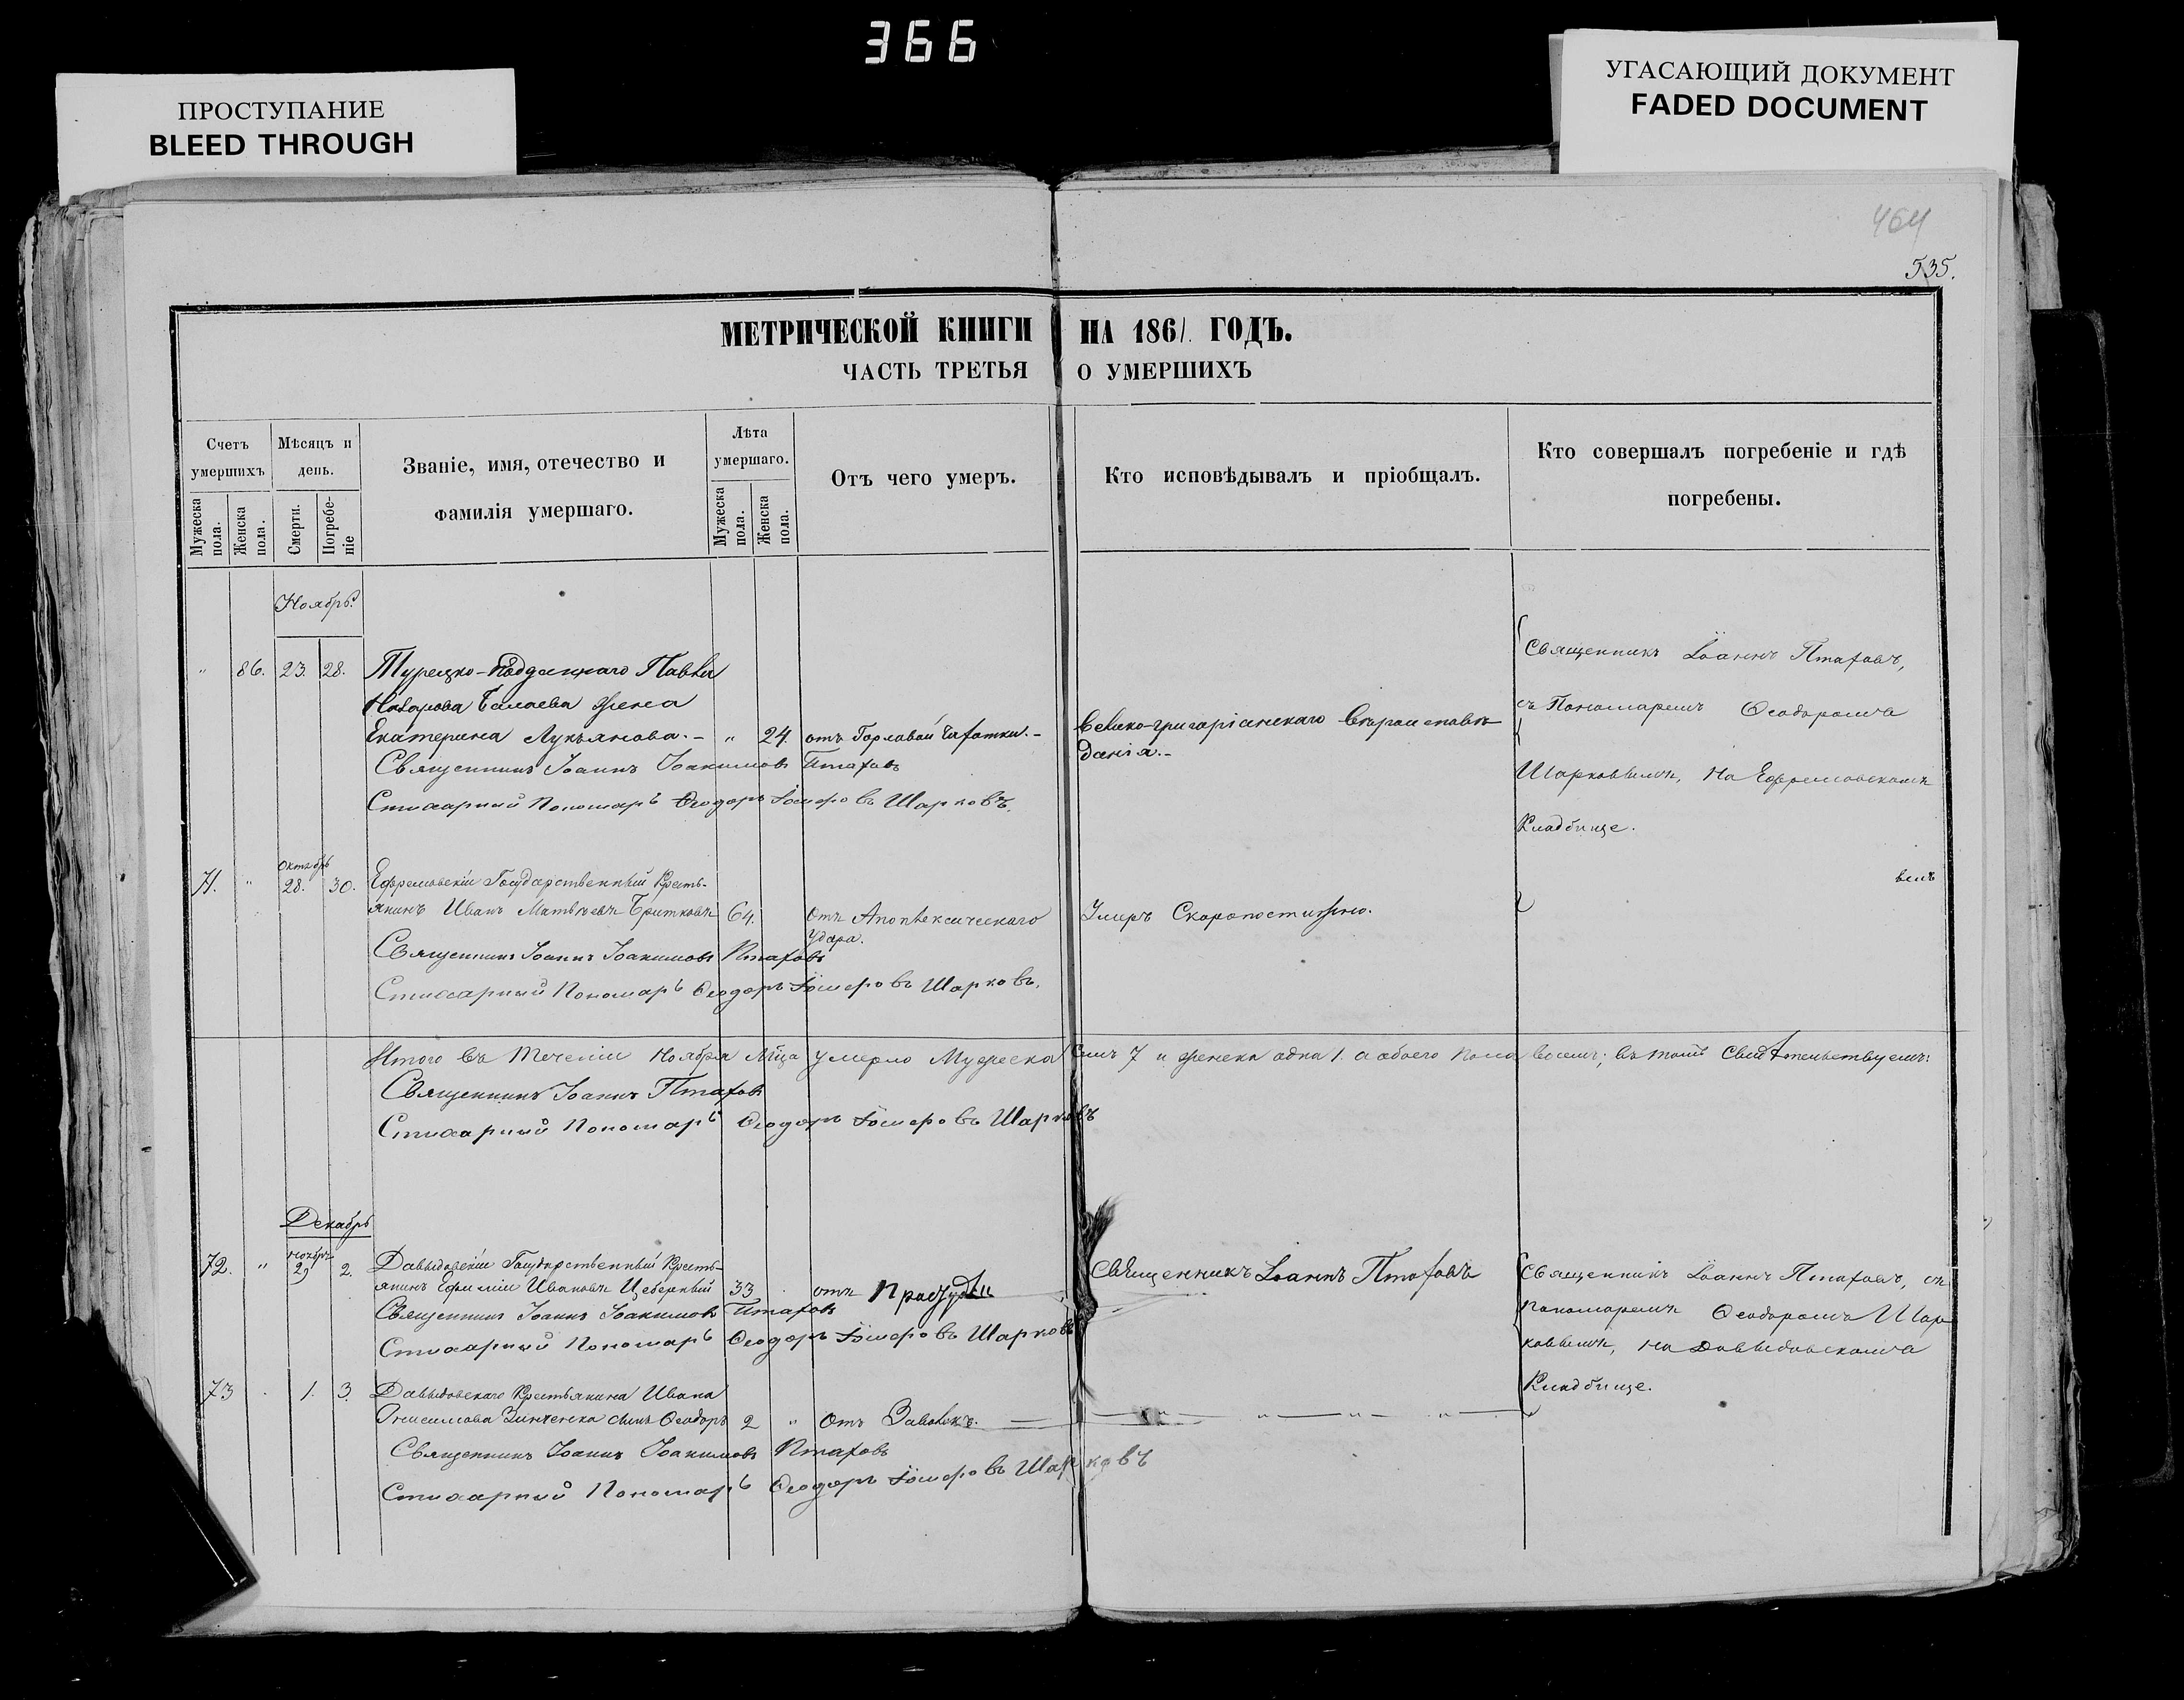 366
ПРОСТУПАНИЕ
BLEED THROUGH
УГАСАЮЩИЙ ДОКУМЕНТ
FADED DOCUMENT
464
535.
МЕТРИЧЕСКОЙ КНИГИ НА 1861. ГОДЪ.
ЧАСТЬ ТРЕТЬЯ О УМЕРШИХЪ
Счетъ умершихъ
Мѣсяцъ и день.
Званіе, имя, отечество и фамилія умершаго.
Лѣта умершаго.
Отъ чего умеръ.
Кто исповѣдывалъ и пріобщалъ.
Кто совершалъ погребеніе и гдѣ погребены.
Мужеска пола.
Женска пола.
Смерти.
Погребе-ніе
Мужеска пола.
Женска пола.
Ноябрь.
" 86. 23. 28. Турецко-подданнаго Павла
Назарова жена
Екатерина Лукьянова. - " 24. отъ Горловой Чахотки. -
дания. -
Священникъ Іоаннъ Птаховъ,
съ Пономаремъ Ѳеодоромъ
Шарковымъ, на Ефремовскомъ
Кладбище.
Священникъ Іоаннъ Іоакимовъ Птаховъ
Стихарный Пономарь Ѳеодоръ Шарковъ.
Октябрь
71. " 28. 30. Ефремовскій Государственный Кресть-
янинъ Иванъ Матвѣевъ Бритковъ 64. Отъ Апоплексическаго
удара.
Умеръ Скоропостижно.
Священникъ Іоаннъ Іоакимовъ Птаховъ
Стихарный Пономарь Ѳеодоръ Шарковъ.
Итого въ течении Ноября Мца умерло Мужеска Семь 7 и женска одна 1. а обоего пола восемь; въ томъ свидѣтельствуемъ:
Священникъ Іоаннъ Птаховъ
Стихарный Пономарь Ѳеодоръ Шарковъ
Декабрь
Ноябрь
72. " 29 2. Давыдовскій Государственный Кресть-
янинъ Ефимій Ивановъ Цеберный 33 отъ Простуды
Священникъ Іоаннъ Птаховъ
Священникъ Іоаннъ Птаховъ, съ
пономаремъ Ѳеодоромъ Шар
ковымъ, на Давыдовскомъ
Кладбище.
Священникъ Іоаннъ Іоакимовъ Птаховъ
Стихарный Пономарь Ѳеодоръ Шарковъ
73 . 1. 3. Давыдовскаго Крестьянина Ивана
Онисимова Зинченка сынъ Ѳеодоръ 2 " Отъ
Священникъ Іоаннъ Іоакимовъ Птаховъ
Стихарный Пономарь Ѳеодоръ Шарковъ